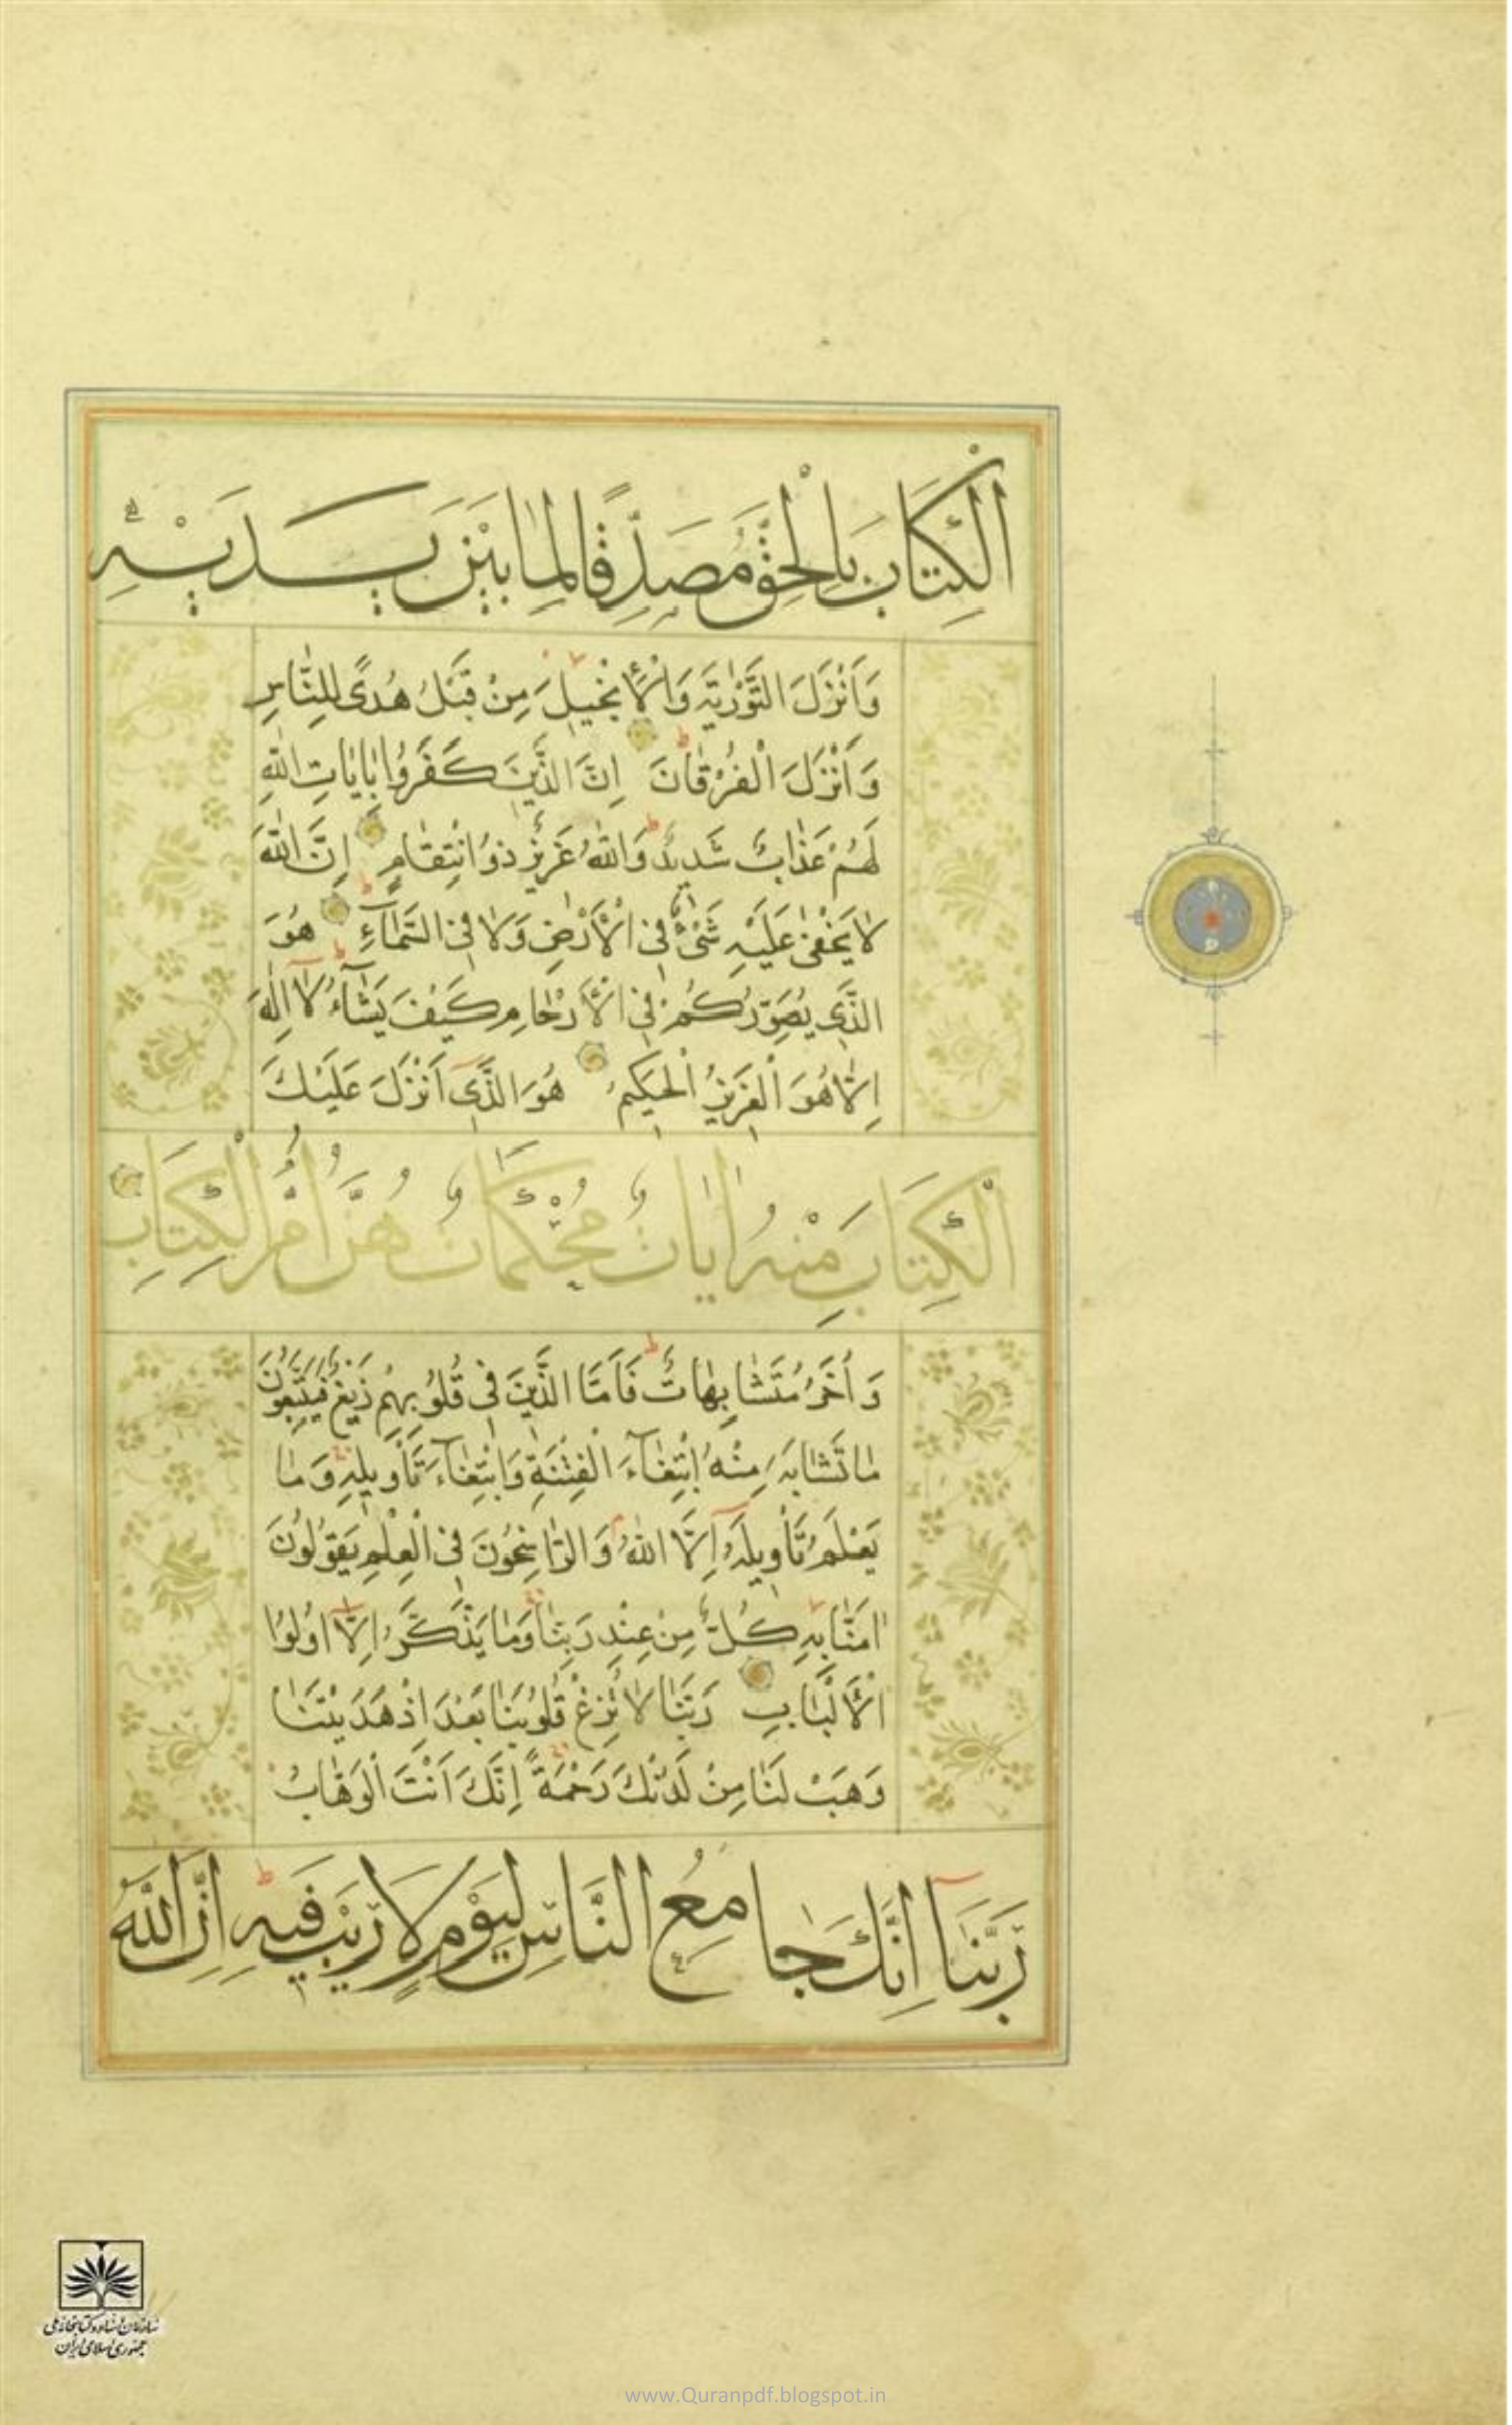 الْكِتَابَ بِالْحَقِّ مُصَدِّقًا لِمَا بَيْنَ يَدَيْهِ
وَأَنْزَلَ التَّوْرٰيةَ وَالْأِنْجِيلَ مِنْ قَبْلُ هُدًى لِلنَّاسِ
وَأَنْزَلَ الْفُرْقَانَ إِنَّ الَّذِينَ كَفَرُوا بِاٰيَاتِ اللّٰهِ
لَهُمْ عَذَابٌ شَدِيدٌ وَاللّٰهُ عَزِيزٌ ذُو انْتِقَامٍ إِنَّ اللّٰهَ
لَا يَخْفٰى عَلَيْهِ شَىْءٌ فِى الْأَرْضِ وَلَا فِى السَّمَآءِ هُوَ
الَّذِى يُصَوِّرُكُمْ فِى الْأَرْحَامِ كَيْفَ يَشَآءُ لَا اِلٰهَ
اِلَّا هُوَ الْعَزِيزُ الْحَكِيمُ هُوَ الَّذِى اَنْزَلَ عَلَيْكَ
الْكِتَابَ مِنْهُ اٰيَاتٌ مُحْكَمَاتٌ هُنَّ اُمُّ الْكِتَابِ
وَاُخَرُ مُتَشَابِهَاتٌ فَاَمَّا الَّذِينَ فِى قُلُوبِهِمْ زَيْغٌ فَيَتَّبِعُونَ
مَا تَشَابَهَ مِنْهُ ابْتِغَآءَ الْفِتْنَةِ وَابْتِغَآءَ تَأْوِيلِهِ وَمَا
يَعْلَمُ تَأْوِيلَهُ اِلَّا اللّٰهُ وَالرَّاسِخُونَ فِى الْعِلْمِ يَقُولُونَ
اٰمَنَّا بِهِ كُلٌّ مِنْ عِنْدِ رَبِّنَا وَمَا يَذَّكَّرُ اِلَّا اُولُوا
الْأَلْبَابِ رَبَّنَا لَا تُزِغْ قُلُوبَنَا بَعْدَ اِذْ هَدَيْتَنَا
وَهَبْ لَنَا مِنْ لَدُنْكَ رَحْمَةً اِنَّكَ اَنْتَ الْوَهَّابُ
رَبَّنَآ اِنَّكَ جَامِعُ النَّاسِ لِيَوْمٍ لَا رَيْبَ فِيهِ اِنَّ اللّٰهَ
سازمان اسناد و کتابخانه ملی
جمهوری اسلامی ایران
www.Quranpdf.blogspot.in